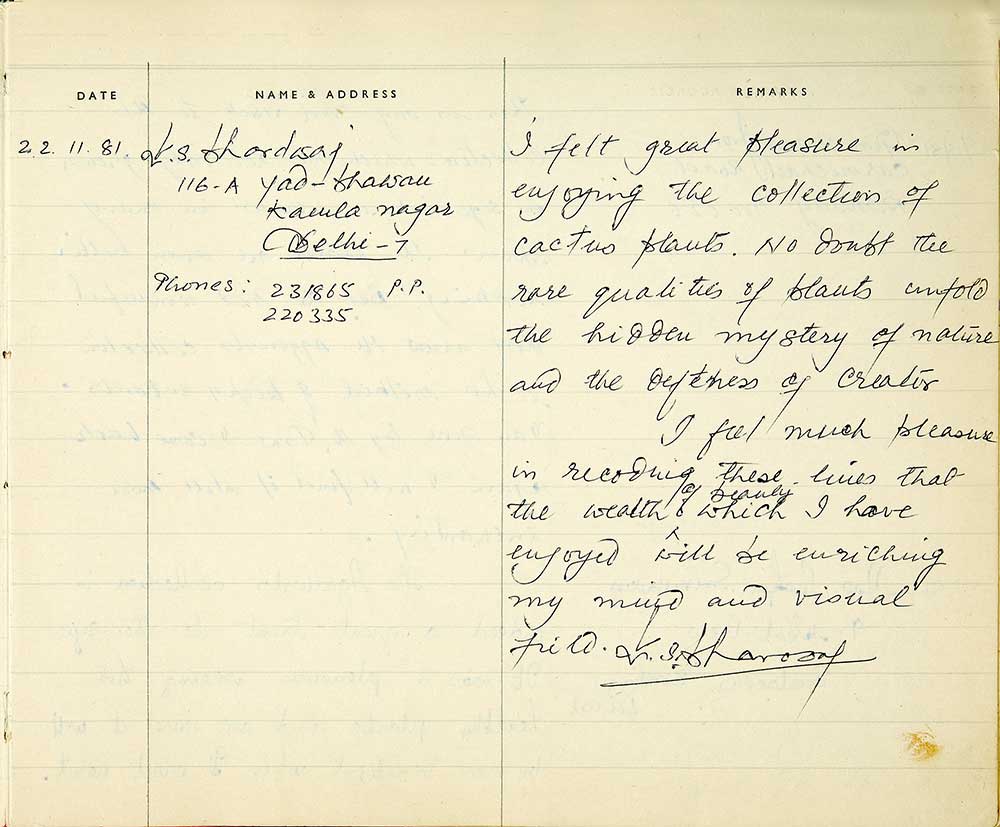 DATE
NAME & ADDRESS
REMARKS
22.11.81
K.S. Bhardwaj
116-A Yad-Bhawan
Kamla nagar
Delhi-7
Phones: 231865 P.P.
220335
I felt great pleasure in
enjoying the collection of
cactus plants. No doubt the
rare qualities of plants unfold
the hidden mystery of nature
and the deftness of Creator
I feel much pleasure
in recoding these lines that
of beauty
the wealth which I have
enjoyed will be enriching
my mind and visual
field. K.S. Bhardwaj